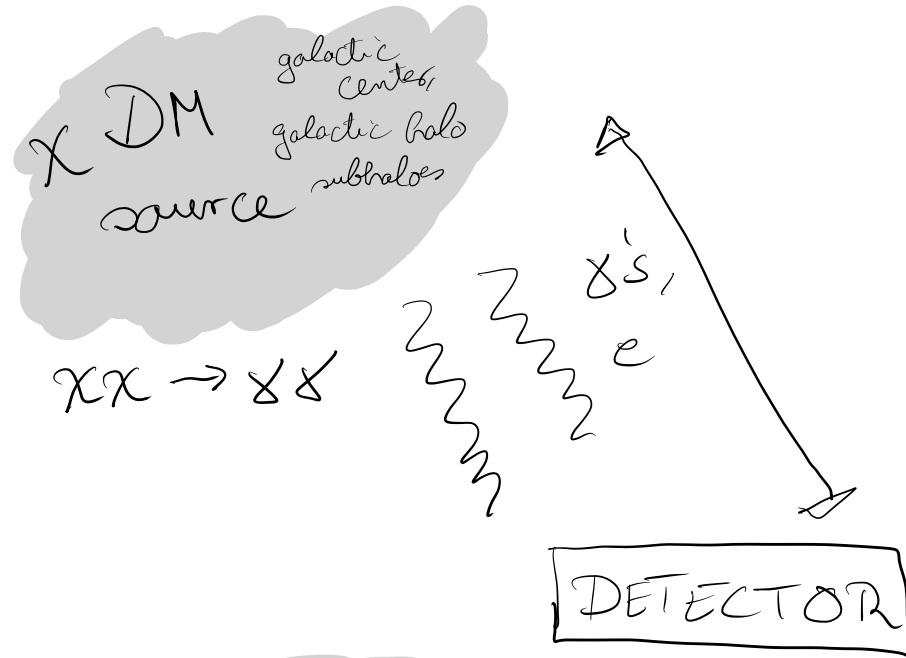 χ DM
source
galactic
center,
galactic halo
subhaloes
γ's,
e
χχ → γγ
DETECTOR